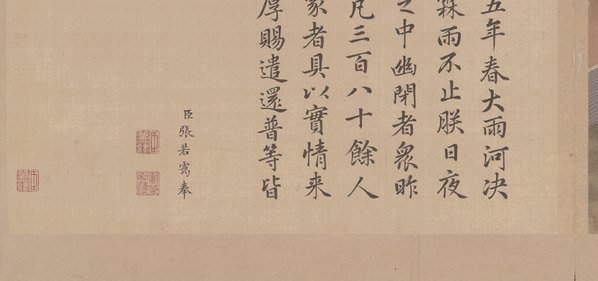 五年春大雨河决
霖雨不止朕日夜
之中幽閉者衆昨
凡三百八十餘人
家者具以實情来
厚賜遣還普等皆
臣張若靄奉